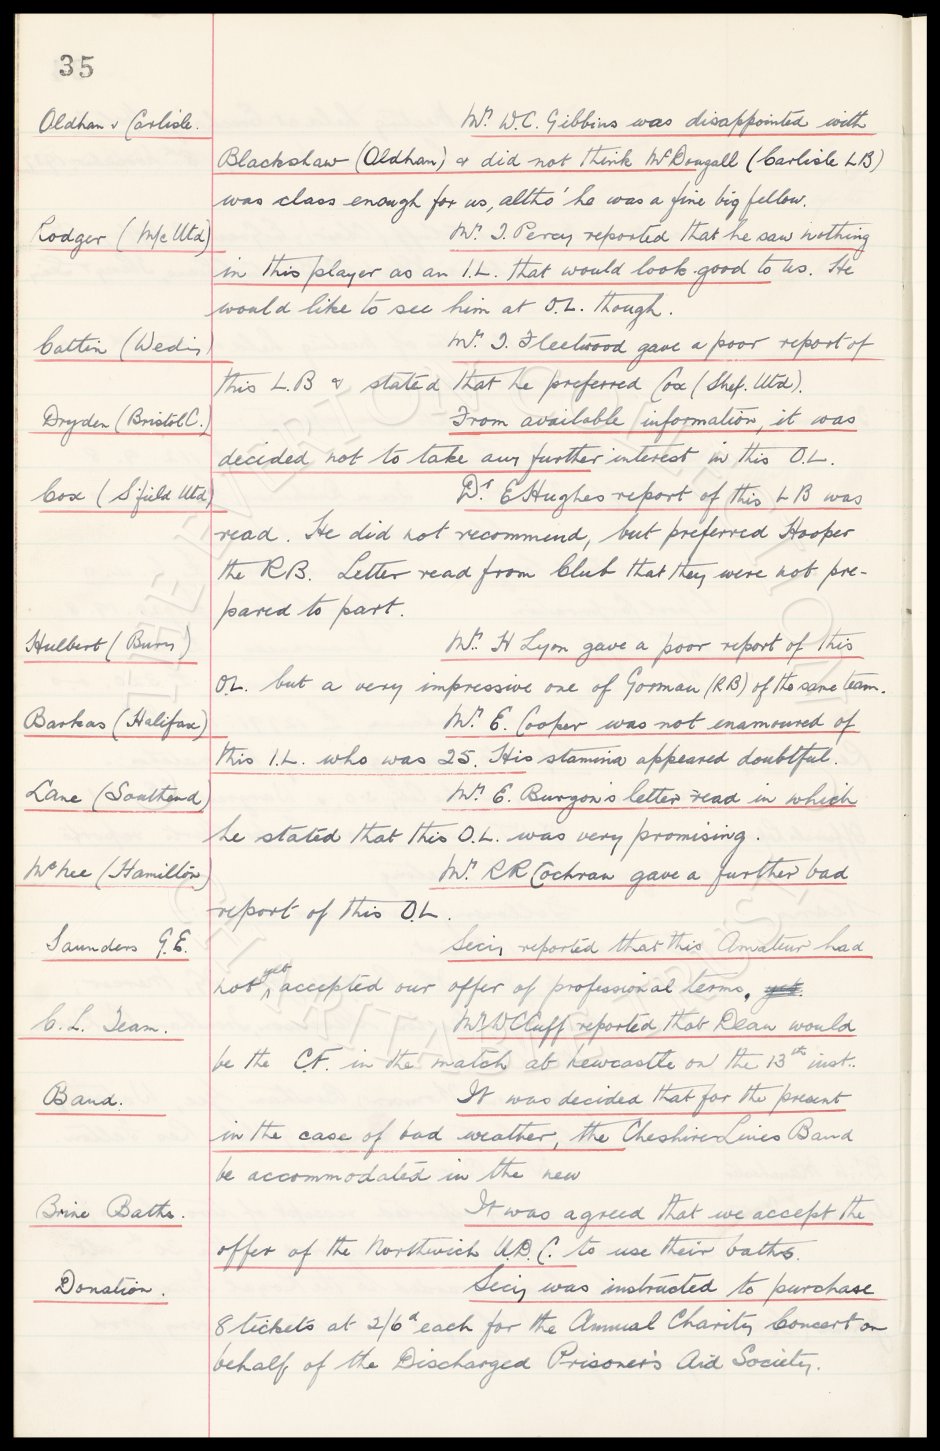 35
Oldham v Carlisle. Mr. W.C. Gibbins was disappointed with
Blackshaw (Oldham) & did not think McDougall (Carlisle LB)
was class enough for us, altho' he was a fine big fellow.
Rodger (M/c Utd) Mr. J. Percy reported that he saw nothing
in this player as an I.L. that would look good to us. He
would like to see him at O.L. though.
Cattlin (Wedn'y) Mr. J. Fleetwood gave a poor report of
this L.B & stated that he preferred Cox (Shef. Utd).
Dryden (Bristol C.) From available information, it was
decided not to take any further interest in this O.L.
Cox (S'field Utd) Dr. E Hughes report of this LB was
read. He did not recommend, but preferred Hooper
the RB. Letter read from Club that they were not pre-
pared to part.
Hulbert (Bury) Mr. H Lyon gave a poor report of this
OL. but a very impressive one of Gorman (RB) of the same team.
Barkas (Halifax) Mr. E. Cooper was not enamoured of
this I.L. who was 25. His stamina appeared doubtful.
Lane (Southend) Mr. E. Burgon's letter read in which
he stated that this O.L. was very promising.
McNee (Hamilton) Mr. RR Cochran gave a further bad
report of this O.L.
Saunders G.E. Secy reported that this Amateur had
not yet accepted our offer of professional terms. yet.
C.L. Team. Mr WCCuff reported that Dean would
be the C.F. in the match at Newcastle on the 13th inst.
Band. It was decided that for the present
in the case of bad weather, the Cheshire Lines Band
be accommodated in the new
Brine Baths. It was agreed that we accept the
offer of the Northwich U.D.C. to use their baths.
Donation. Secy was instructed to purchase
8 tickets at 2/6d each for the Annual Charity Concert on
behalf of the Discharged Prisoner's Aid Society.
THE EVERTON COLLECTION
CHARITABLE TRUST